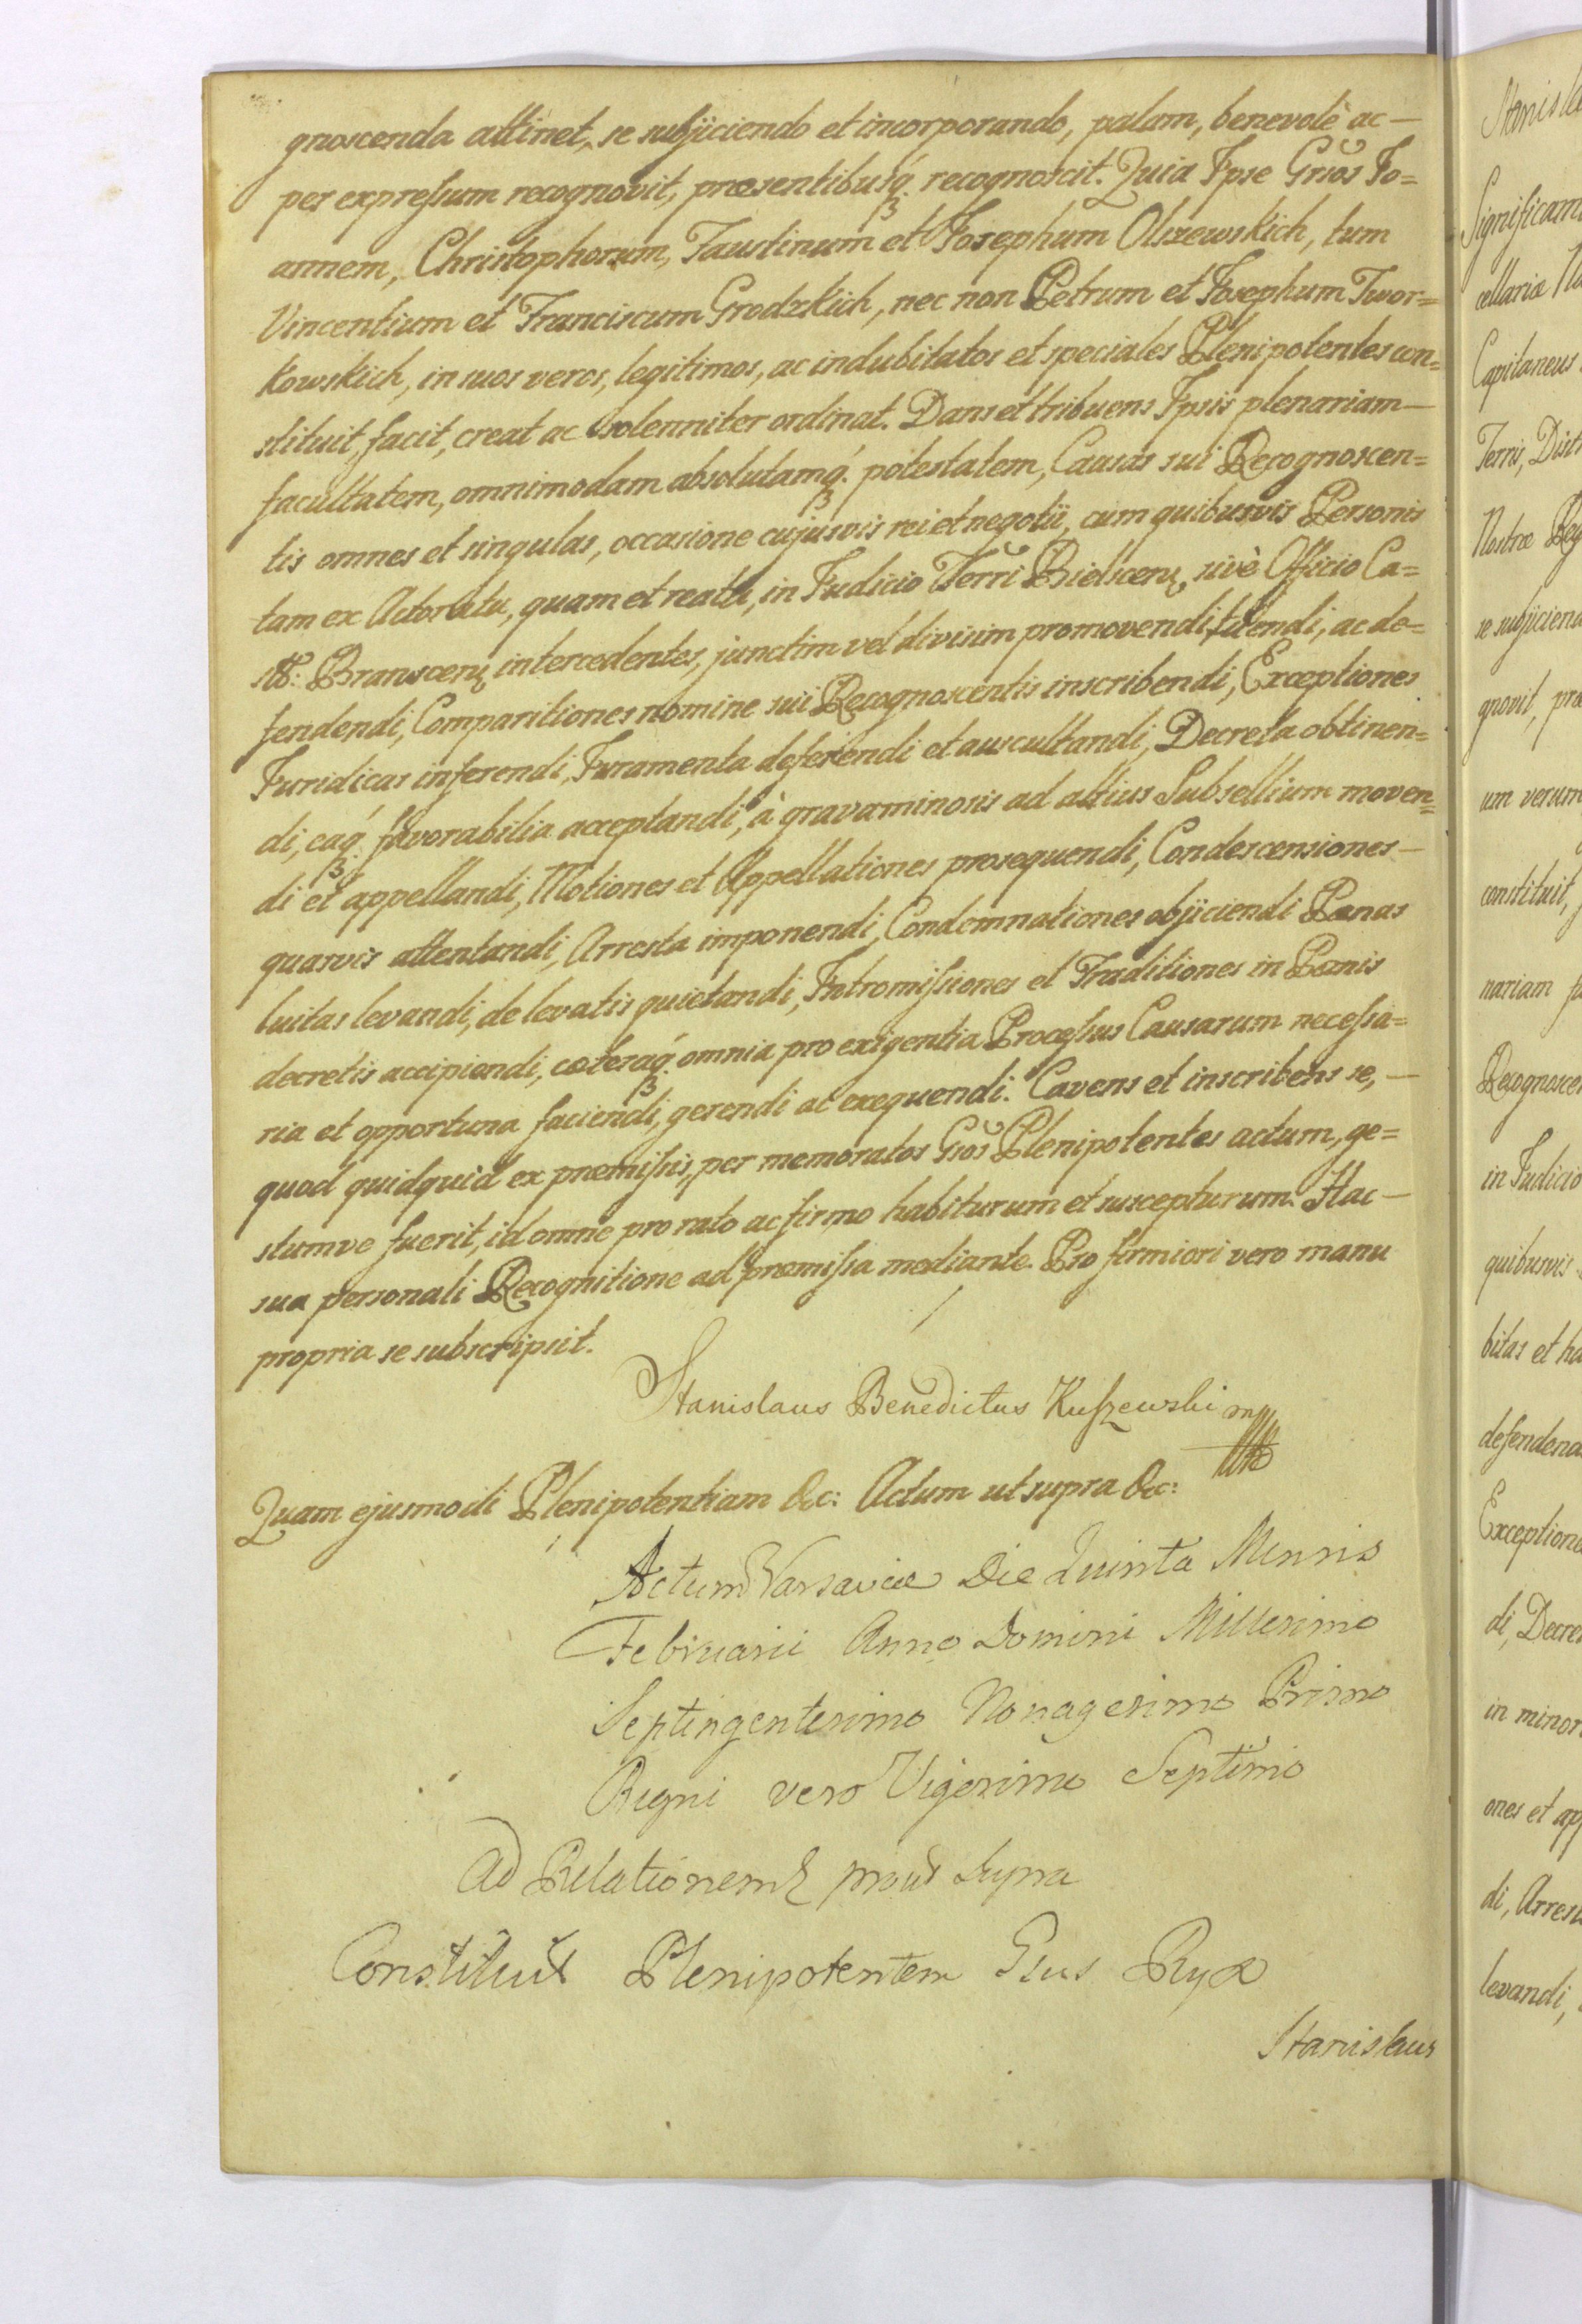 gnoscenda attinet, se subjiciendo et incorporando, palam, benevolè ac —
per expressum recognovit, præsentibusq́3. recognoscit. Quia Ipse Grsos Jo=
annem, Christophorum, Faustinum et Josephum Olszewskich, tum
Vincentium et Franciscum Grodzkich, nec non Petrum et Josephum Twor=
kowskich, in suos veros, legitimos, ac indubitatos et speciales Plenipotentes con=
stituit, facit, creat ac solenniter ordinat. Dans et tribuens Ipsis plenariam —
facultatem, omnimodam absolutamq́3. potestatem, Causas sui Recognoscen=
tis omnes et singulas, occasione cujusvis rei et negotii, cum quibusvis Personis
tam ex Actoratu, quam et reatu, in Judicio Terri Bielscens, sivè Officio Ca=
str: Branscens intercedentes, junctim vel divisim promovendi, tuendi, ac de=
fendendi, Comparitiones nomine sui Recognoscentis inscribendi, Exceptiones
Juridicas inferendi, Juramenta deferendi et auscultandi, Decreta obtinen=
di, eaq́3. favorabilia acceptandi, à gravaminosis ad altius Subsellium moven=
di et appellandi, Motiones et Appellationes prosequendi, Condescensiones —
quasvis attentandi, Arresta imponendi, Condemnationes objiciendi Pænas
luitas levandi, de levatis quietandi, Intromissiones et Traditiones in Pænis
decretis accipiendi, cæteraq́3. omnia pro exigentia Processus Causarum necessa=
ria et opportuna faciendi, gerendi ac exequendi. Cavens et inscribens se, —
quod quidquid ex præmissis, per memoratos Gsos Plenipotentes actum, ge=
stumve fuerit, id omne pro rato ac firmo habiturum et suscepturum. Hac —
sua personali Recognitione ad præmissa mediante. Pro firmiori vero manu
propria se subscripsit.
Stanislaus Benedictus Kuszewski mp
Quam ejusmodi Plenipotentiam &c: Actum ut supra &c:
Actum Varsaviæ Die Quinta Mensis
Februarii Anno Domini Millesimo
Septingentesimo Nonagesimo Primo
Regni vero Vigesimo Septimo
Ad Relationem prout supra
Constituit Plenipotentem Gsus Ryx
Stanislaus
Stanisla
Significam
cellariæ No
Capitaneus
Terris, Distr
Nostræ Reg
se subjiciend
gnovit, præ
um verum
constituit,
nariam fa
Recognoscen
in Judicio
quibusvis
bitas et ha
defendend
Exceptione
di, Decre
in minor
ones et app
di, Arrest
levandi,